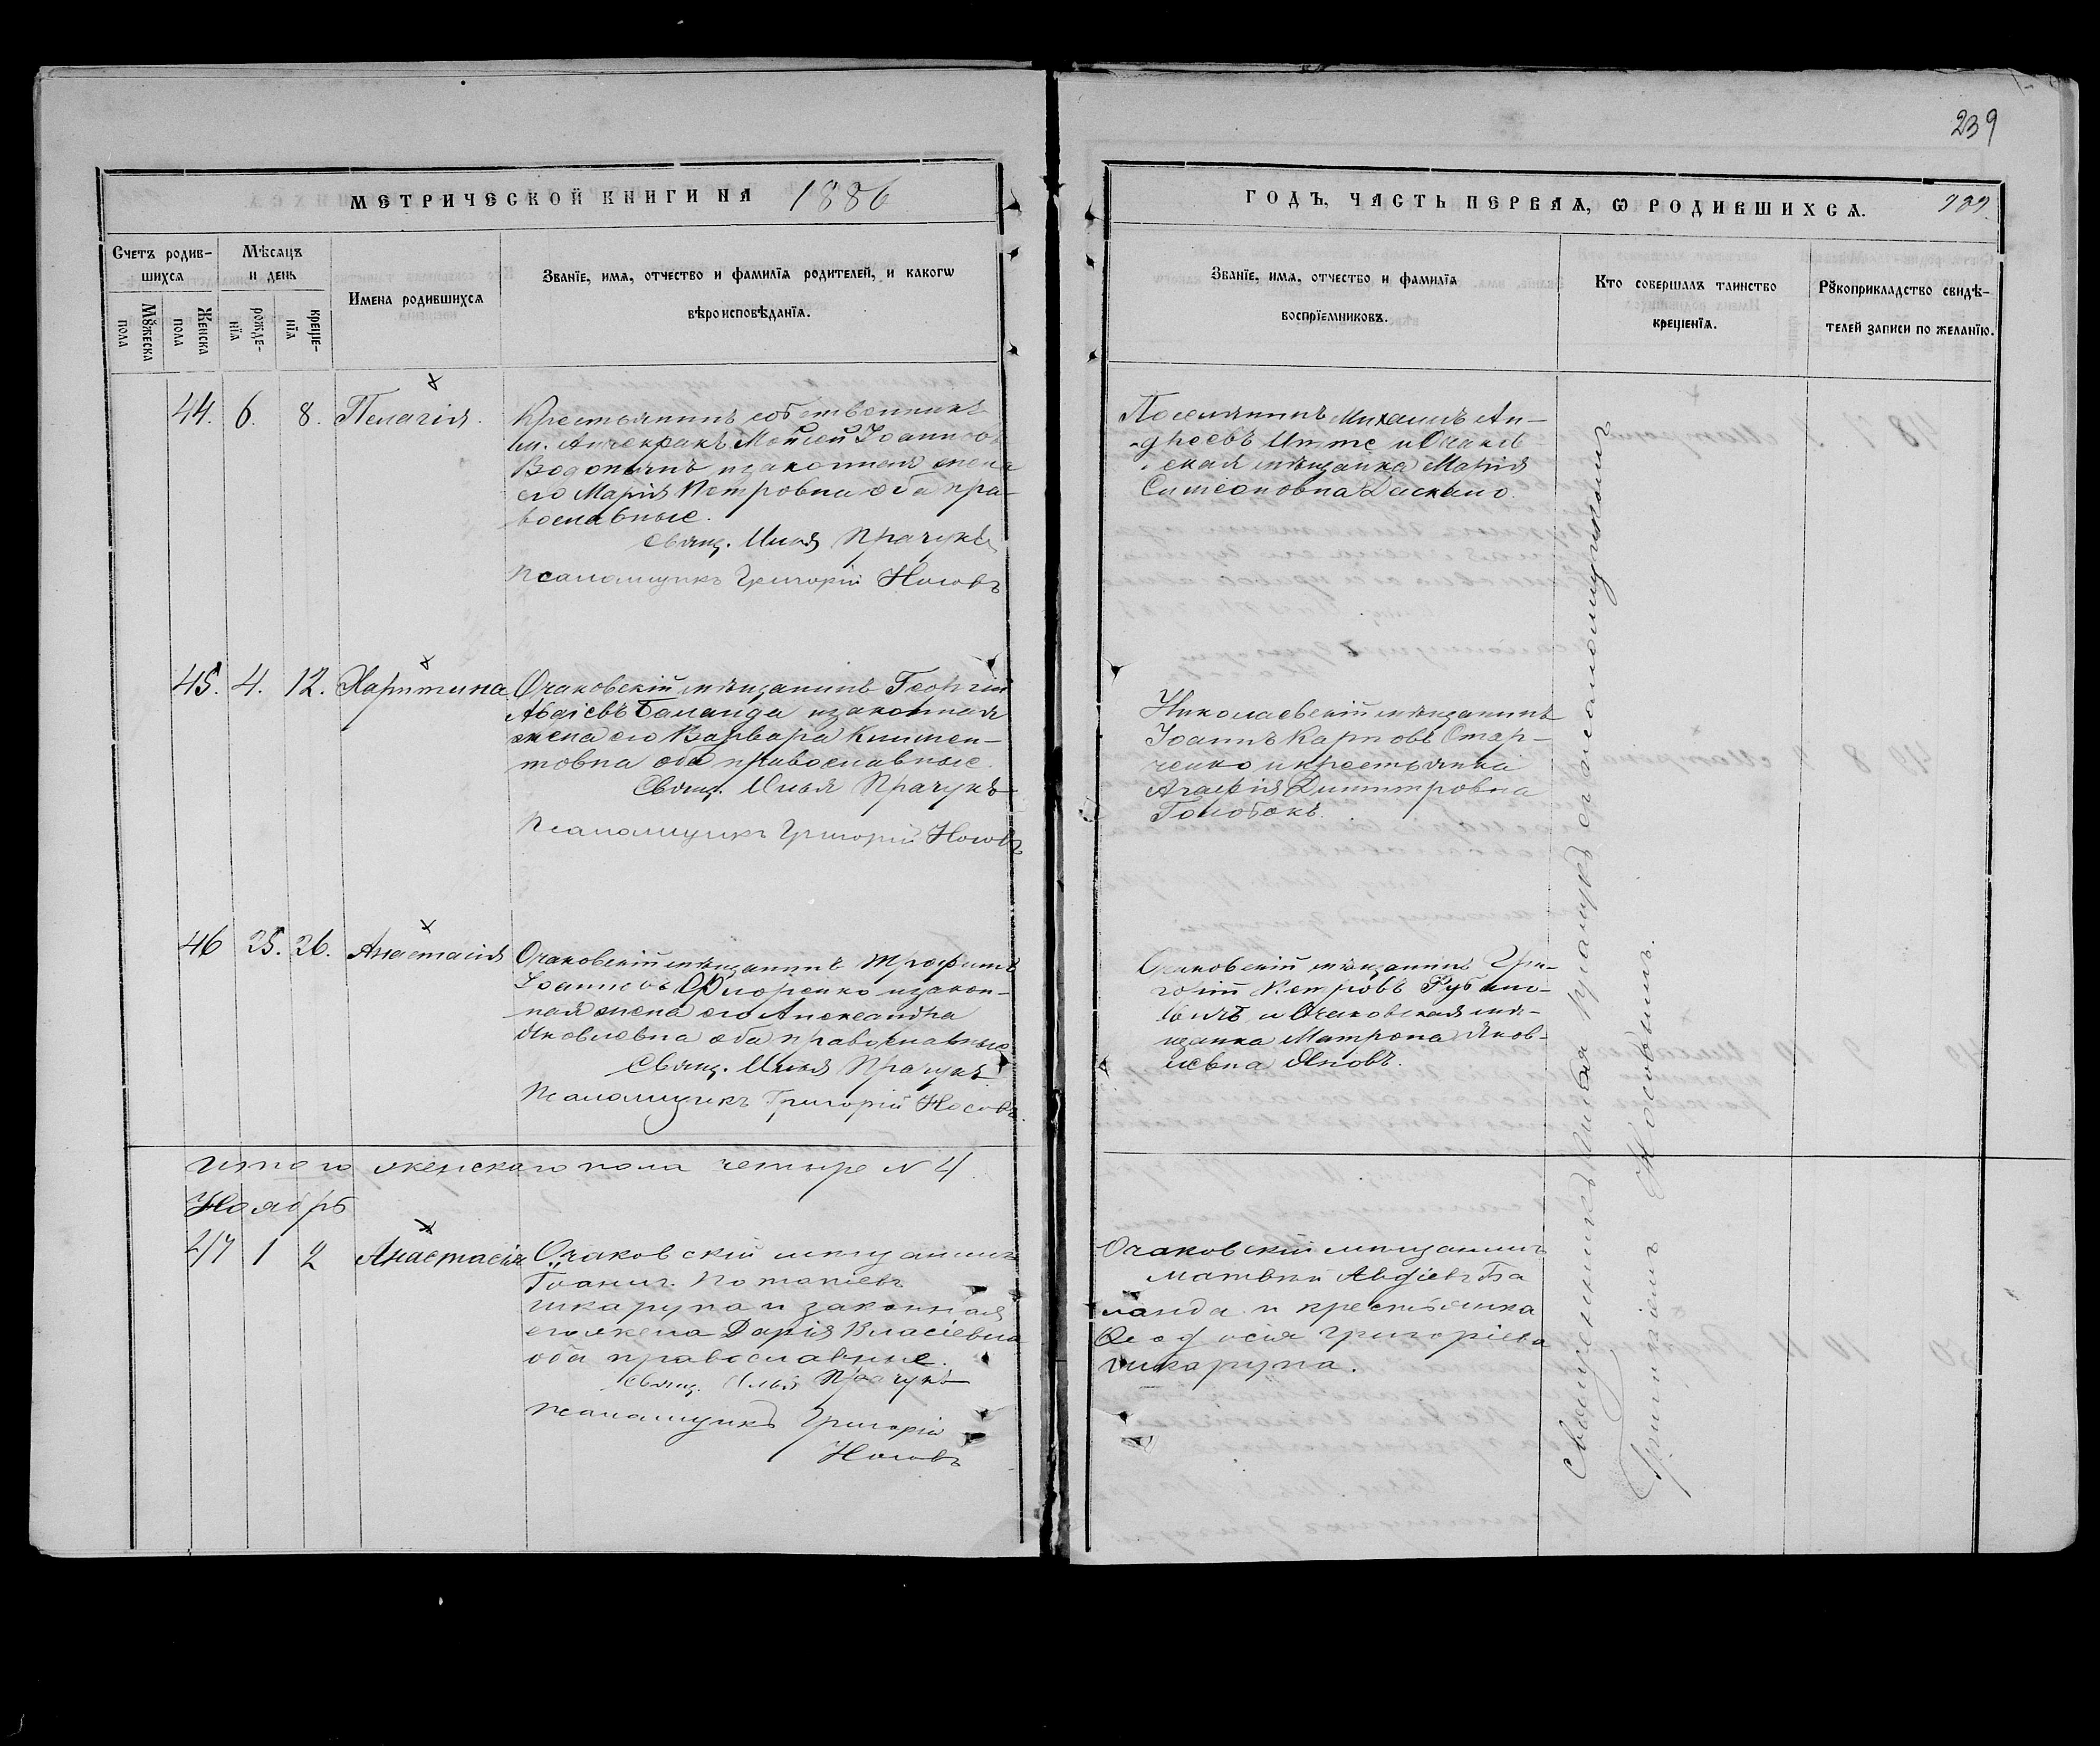 239
МЕТРИЧЕСКОЙ КНИГИ НА 1886
ГОДЪ, ЧАСТЬ ПЕРВАЯ, Ѡ РОДИВШИХСѦ.
Счетъ родив-
шихсѧ
Мѣсѧцъ
и день
Мꙋжеска
пола
Женска
пола
рожде-
нїѧ
креще-
нїѧ
Имена родившихсѧ
Званїе, имѧ, отчество и фамилїѧ родителей, и какогѡ
вѣроисповѣданїѧ.
Званїе, имѧ, отчество и фамилїѧ
воспрїемниковъ.
Кто совершалъ таинство
крещенїѧ.
Рꙋкоприкладство свидѣ-
телей записи по желанїю.
44. 6. 8. Пелагія.
Крестьянинъ собственникъ
Моисей Іоанновъ
Водопьянъ и законная жена
его Марія Петровна оба пра-
вославные.
Свящ. Илья Прачукъ
Псаломщикъ Григорій Носовъ
Поселянинъ Михаилъ Ан-
дреевъ и Очаков-
ская мѣщанка Марія
Симеоновна
45. 4. 12. Харитина
Очаковскій мѣщанинъ Георгій
Авдіевъ Баланда и законная
жена его Варвара Климен-
товна оба православные.
Свящ. Илья Прачукъ
Псаломщикъ Григорій Носовъ
Николаевскій мѣщанинъ
Іоаннъ Карповъ Стар-
ченко и крестьянка
Агафія Димитровна
Голобокъ.
46 25. 26. Анастасія
Очаковскій мѣщанинъ Трофимъ
Іоанновъ Флоренко и закон-
ная жена его Александра
Яковлевна оба православные
Свящ. Илья Прачукъ
Псаломщикъ Григорій Носовъ.
Очаковскій мѣщанинъ Гри-
горій Петровъ
и Очаковская мѣ-
щанка Матрона Яков-
левна Яновъ.
Итого женскаго пола четыре № 4
Ноябрь
47 1 2 Анастасія
Очаковскій мещанинъ
Іоаннъ Потапіевъ
Шкарупа и законная
его жена Дарія Власіевна
оба православные.
Свящ. Илья Прачукъ
Псаломщикъ Григорій
Носовъ
Очаковскій мещанинъ
Матвей Авдіевъ Ба
ланда и крестьянка
Ѳеодосія Григоріева
Шкарупа.
Священникъ Илья Прачукъ съ псаломщикомъ
Григоріемъ Носовымъ.